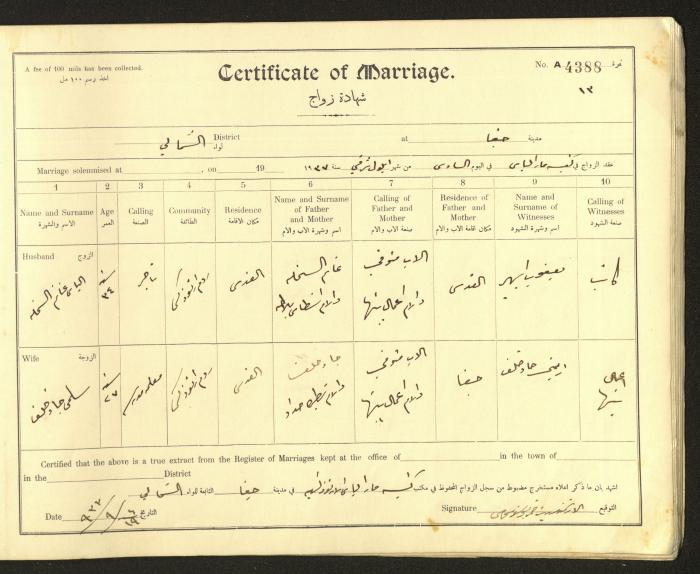 A fee of 100 mils has been collected.
اخذ رسم ١٠٠ مل
Certificate of Marriage.
شهادة زواج
No. A 4388 نمرة
١٣
District
لواء الشمالي
at حيفا مدينة
Marriage solemnised at , on 19
عقد الزواج في كنيسة مار الياس في اليوم السادس من شهر ايلول شرقي سنة ١٩٣٧
1 2 3 4 5 6 7 8 9 10
Name and Surname Age Calling Community Residence Name and Surname of Father and Mother Calling of Father and Mother Residence of Father and Mother Name and Surname of Witnesses Calling of Witnesses
الاسم والشهرة العمر الصنعة الطائفة مكان الاقامة اسم وشهرة الاب والام صنعة الاب والام مكان اقامة الاب والام اسم وشهرة الشهود صنعة الشهود
Husband الزوج
الياس غانم سنة ٣٤ تاجر روم ارثوذكس القدس غانم والام الاب متوفي والام اعمال بيتها القدس يعقوب كاتب
Wife الزوجة
سلمى جاد خلف سنة معلمة مدرسة روم ارثوذكس القدس جاد خلف والام حداد الاب متوفي والام اعمال بيتها حيفا جاد خلف اعمال بيتها
Certified that the above is a true extract from the Register of Marriages kept at the office of in the town of
in the District
اشهد بان ما ذكر اعلاه مستخرج مضبوط من سجل الزواج المحفوظ في مكتب كنيسة مار الياس الارثوذكسية في مدينة حيفا التابعة للواء الشمالي
Date التاريخ
Signature التوقيع